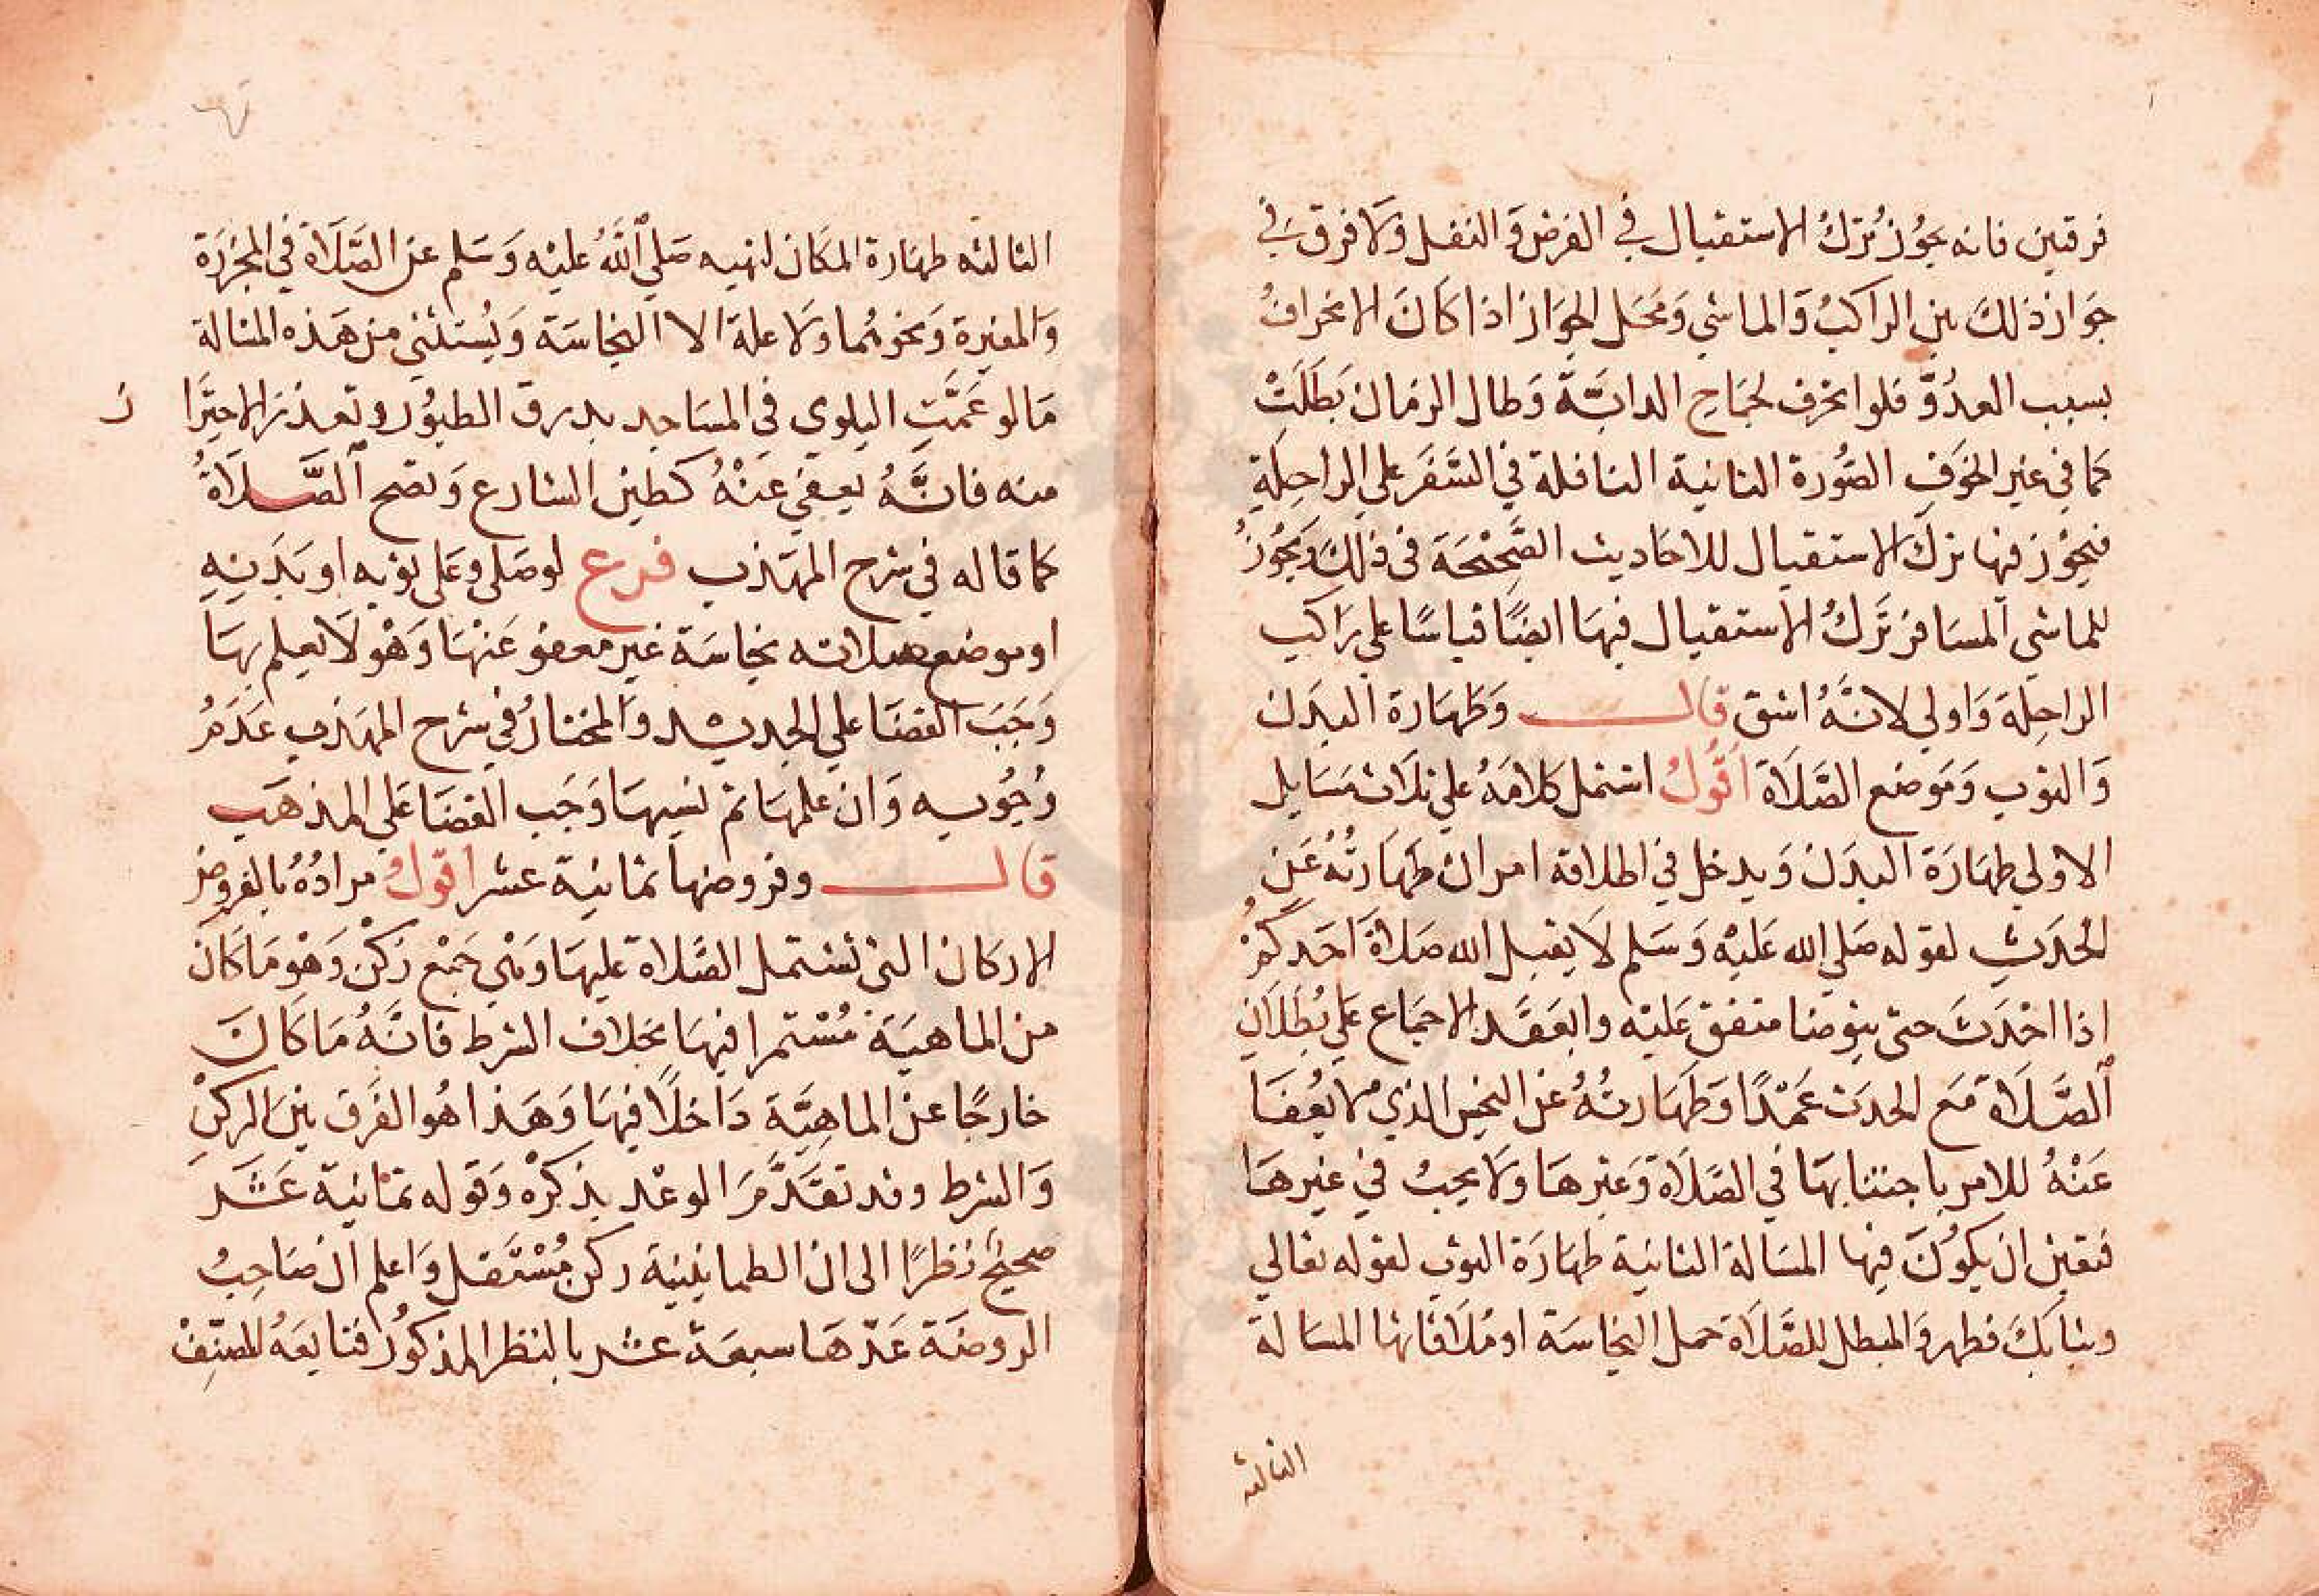 فرقتين فانه يجُوز تركُ الاستقبال في الفرض وَالنفل وَلا فرق في
جَواز ذلكَ بين الراكبُ وَالماشي وَمحَل الجوَاز اذا كانَ الانحرافُ
بسبب العدُوّ فلو انحرف لجمَاح الدابّة وَطال الزمَان بَطلَتْ
كما في غير الخوَفِ الصُورة الثانية النافلة في السَّفَر علي الراحِلةِ
فيجُوز فيها تركَ الاستقبال للاحَاديث الصَّحِيْحَة في ذلكَ وَيجُوزُ
للماشي المسَافر تَركُ الاستقبال فيهَا ايضًا قياسًا علي راكب
الراحِلة وَاولي لانَّهُ اشق قال وَطهَارة البدَن
وَالثوب وَمَوضع الصَّلَاة اَقُولُ اشتمل كلامَهُ علي ثلَاث مسَايل
الاولي طهَارَة البدَن وَيدخل في اطلاقه امران طهَارتُهُ عَن
الحدَثِ لقوله صَلي الله عَليْه وَسَلم لَا يقبل الله صَلاةَ احَدكُمْ
اذا احْدَثَ حتى يتوضا متفق عَليْه وانعَقَد الاجمَاع عَلي بُطلَان
الصَّلَاة مَع الحدَث عَمْدًا وَطهَارتُهُ عن النجس الذي لا يُعفَا
عَنْهُ للامر باجتنابهَا في الصَّلَاة وَغيرهَا وَلا يجبُ في غيرهَا
فتعين ان يكوُنَ فيها المسَالة الثانية طهَارَة الثوب لقوله تعالي
وثيابَكَ فطهر وَالمبطل للصَّلَاة حمل النجاسَة او مُلَاقاتها المسَالة
الثالثه
الثالثه طهَارة المكَان لنهيه صَلي اللَّهُ عليْه وَسَلم عن الصَّلَاة في المجزرَة
وَالمقبرة وَنحوهُما وَلا علة الا النجاسَة وَيُستثني من هَذه المسَالة
مَا لو عَمَّتِ البلوي في المسَاجد بذرق الطيُور وتعذر الاحترَا
ز
منه فانَّهُ يعفي عَنْهُ كطين الشارع وَتصح الصَّلَاةُ
كما قاله في شرح المهَذب فرع لو صَلي وعَلي ثوبه او بَدَنِهِ
او موضع صلاته نجاسَة غير معفو عَنْهَا وَهْو لَا يعلم بهَا
وَجَبَ القضَا علي الجديد وَالمختارُ في شرح المهَذب عَدَمُ
وُجُوبه وَان علمهَا ثم نسيهَا وَجَب القضَا عَلي المذهَب
قال وفروضها ثمانية عشر اقولُ مرادُهُ بالفروض
الاركان التي تشتمل الصَّلاة عليهَا وَهْي جَمْع رُكن وَهْو مَا كَانَ
من الماهيَة مُسْتمرا فيهَا بخلاف الشرط فانَّهُ مَا كَانَ
خارجًا عن الماهِيَّة دَاخلًا فيهَا وَهَذا هُو الفَرق بيْنَ الركنِ
وَالشرط وقد تقدَّمَ الوعْد بذكرْه وَقوله ثمَانية عَشَر
صحيْح نظرًا الى ان الطمانينية ركن مُسْتَقل وَاعلم ان صَاحِبُ
الروضَة عَدّهَا سبعَة عشر بالنظر المذكوُر فتابعَهُ المصنِّفْ